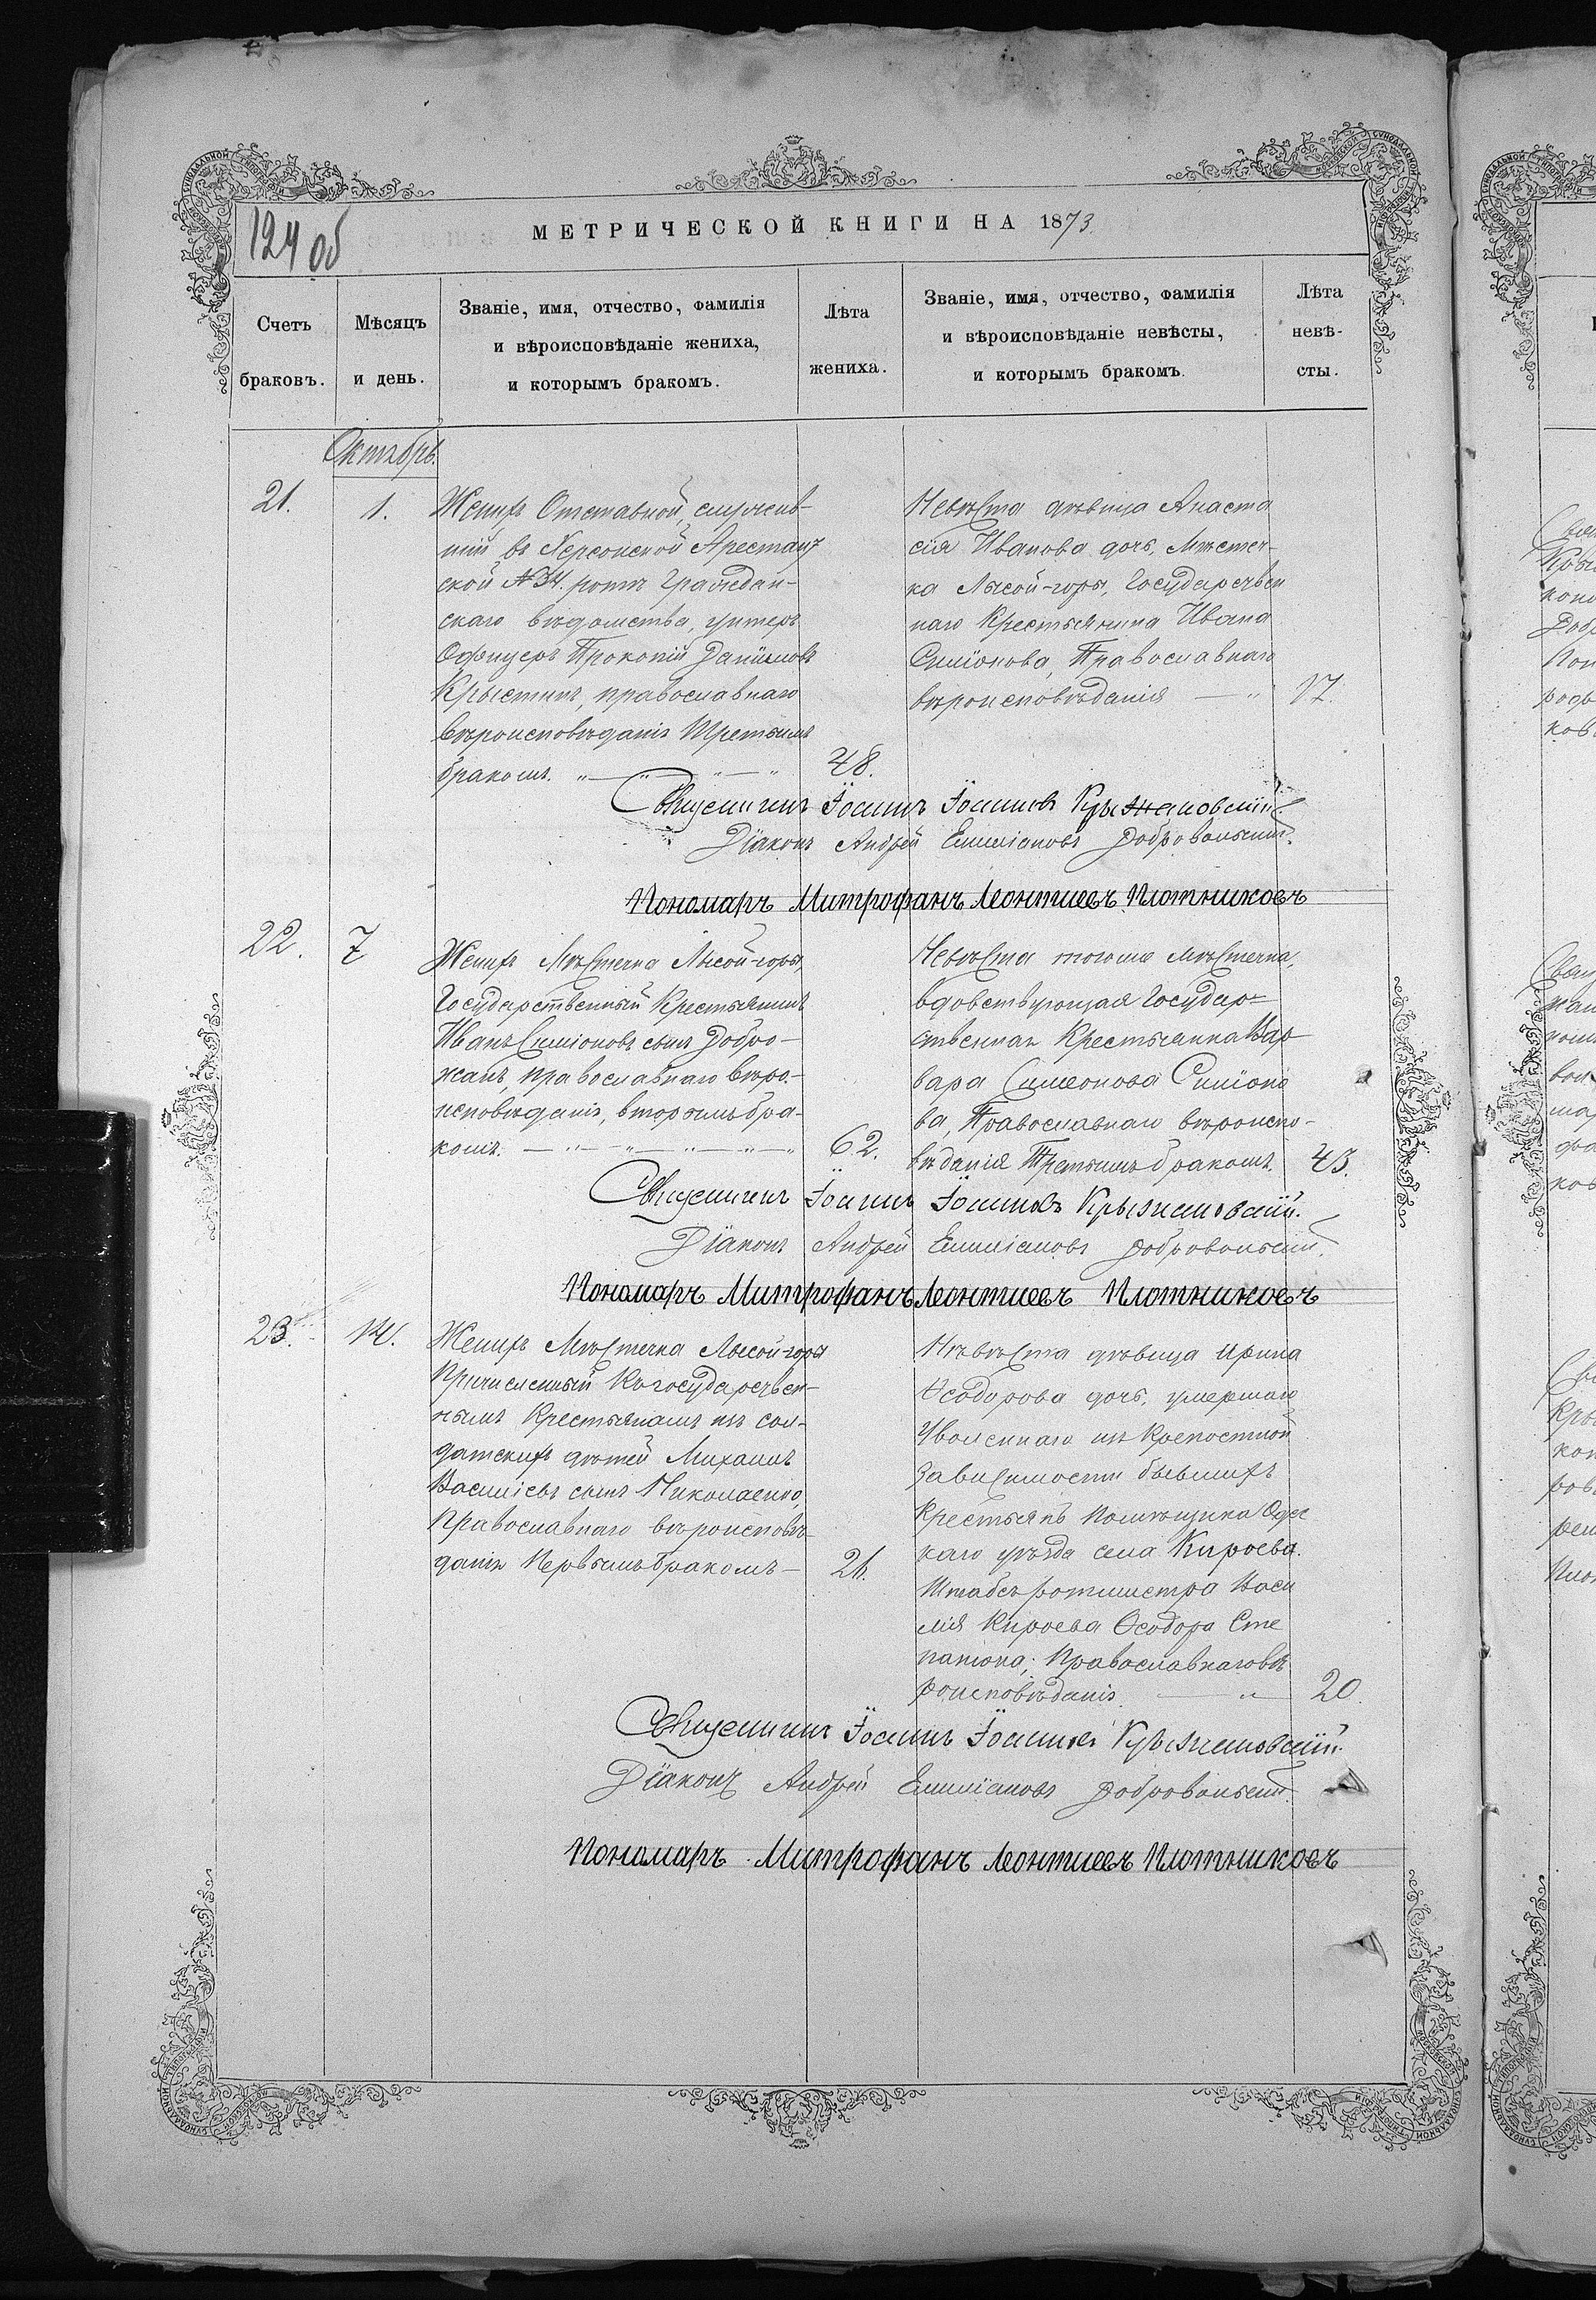 124 об
МЕТРИЧЕСКОЙ КНИГИ НА 1873.
Счетъ
браковъ.
Мѣсяцъ
и день.
Званіе, имя, отчество, фамилія
и вѣроисповѣданіе жениха,
и которымъ бракомъ.
Лѣта
жениха.
Званіе, имя, отчество, фамилія
и вѣроисповѣданіе невѣсты,
и которымъ бракомъ.
Лѣта
невѣ-
сты.
Октябрь.
21.
1.
Женихъ Отставной, служив-
шій въ Херсонской Арестант
ской №34. ротѣ Граждан-
скаго вѣдомства, унтеръ
Офицеръ Прокопій Даниловъ
православнаго
вѣроисповѣданія Третьимъ
бракомъ.
48.
Невѣста дѣвица Анаста
сія Иванова дочь, Мѣстеч-
ка Лысой-горы, Государствен
наго Крестьянина Ивана
Симіонова, Православнаго
вѣроисповѣданія
17.
Священникъ Іоаннъ Іоанновъ Крыжановскій.
Діаконъ Андрей Емиліановъ Добровольскій.
Пономаръ Митрофанъ Леонтиевъ Плотниковъ
22.
7
Женихъ Мѣстечка Лысой-горы,
Государственный Крестьянинъ
Иванъ Симіоновъ сынъ Добро-
жанъ, православнаго вѣро-
исповѣданія, вторымъ бра-
комъ.
62.
Невѣста тогоже Мѣстечка,
вдовствующая Государ-
ственная Крестьянка Вар
вара Симеонова Симіоно
ва, Православнаго вѣроиспо-
вѣданія Третьимъ бракомъ.
43.
Священникъ Іоаннъ Іоанновъ Крыжановскій.
Діаконъ Андрей Емиліановъ Добровольскій.
Пономаръ Митрофанъ Леонтиевъ Плотниковъ
23.
14.
Женихъ Мѣстечка Лысой-горы
Причисленный Къ государствен-
нымъ Крестьянамъ изъ сол-
датскихъ дѣтей Михаилъ
Василіевъ сынъ Николаенко,
Православнаго вѣроисповѣ-
данія Первымъ бракомъ
26.
Нѣвѣста дѣвица Ирина
Ѳеодорова дочь, умершаго
Уволеннаго изъ Крепостной
зависимости бывшихъ
Крестьянъ Помѣщика Одес
каго уѣзда села Кироева.
Штабсъ ротмистра Васи
лія Кироева Ѳеодора Сте
панюка; Православнаго вѣ
роисповѣданія
20.
Священникъ Іоаннъ Іоанновъ Крыжановскій.
Діаконъ Андрей Емиліановъ Добровольскій.
Пономаръ Митрофанъ Леонтиевъ Плотниковъ